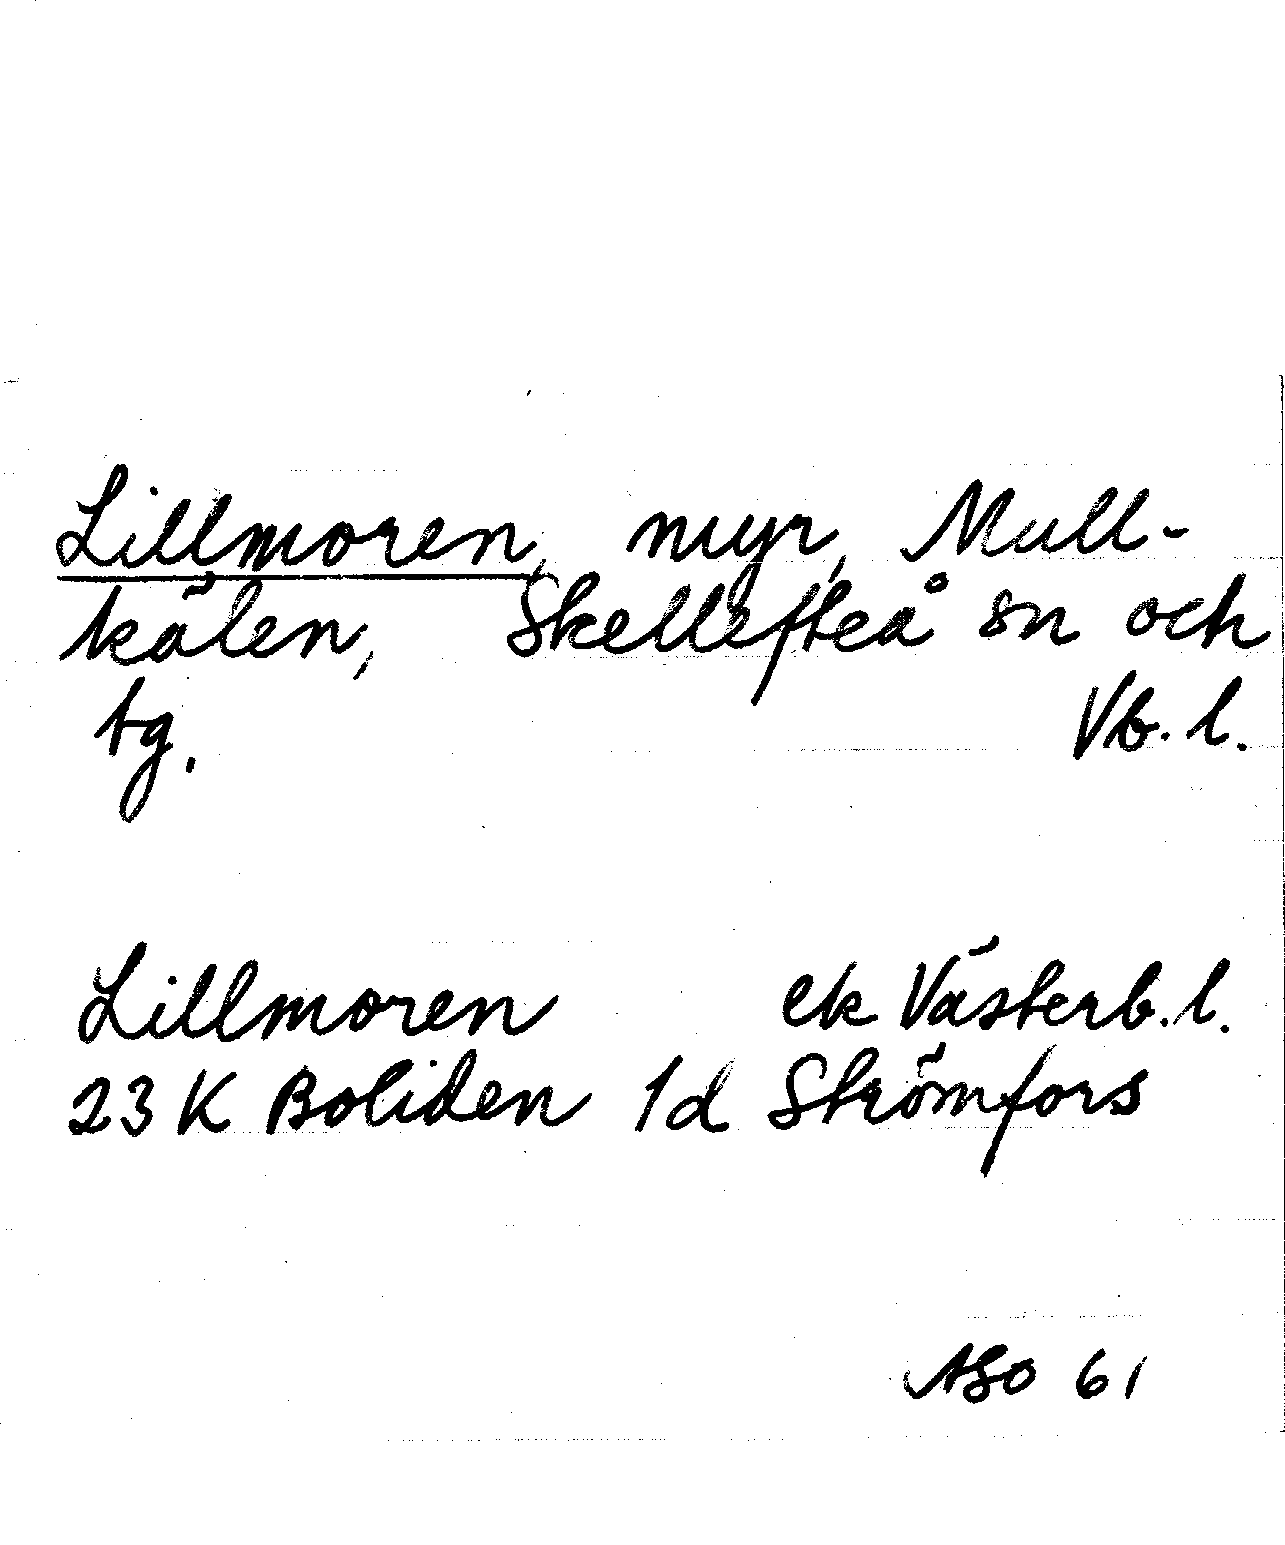 Lillmoren, myr, Mull-
kälen, Skellefteå sn och
tg. Vb. l.
Lillmoren ek Västerb. l.
23 K Boliden 1d Strömfors
ASO 61